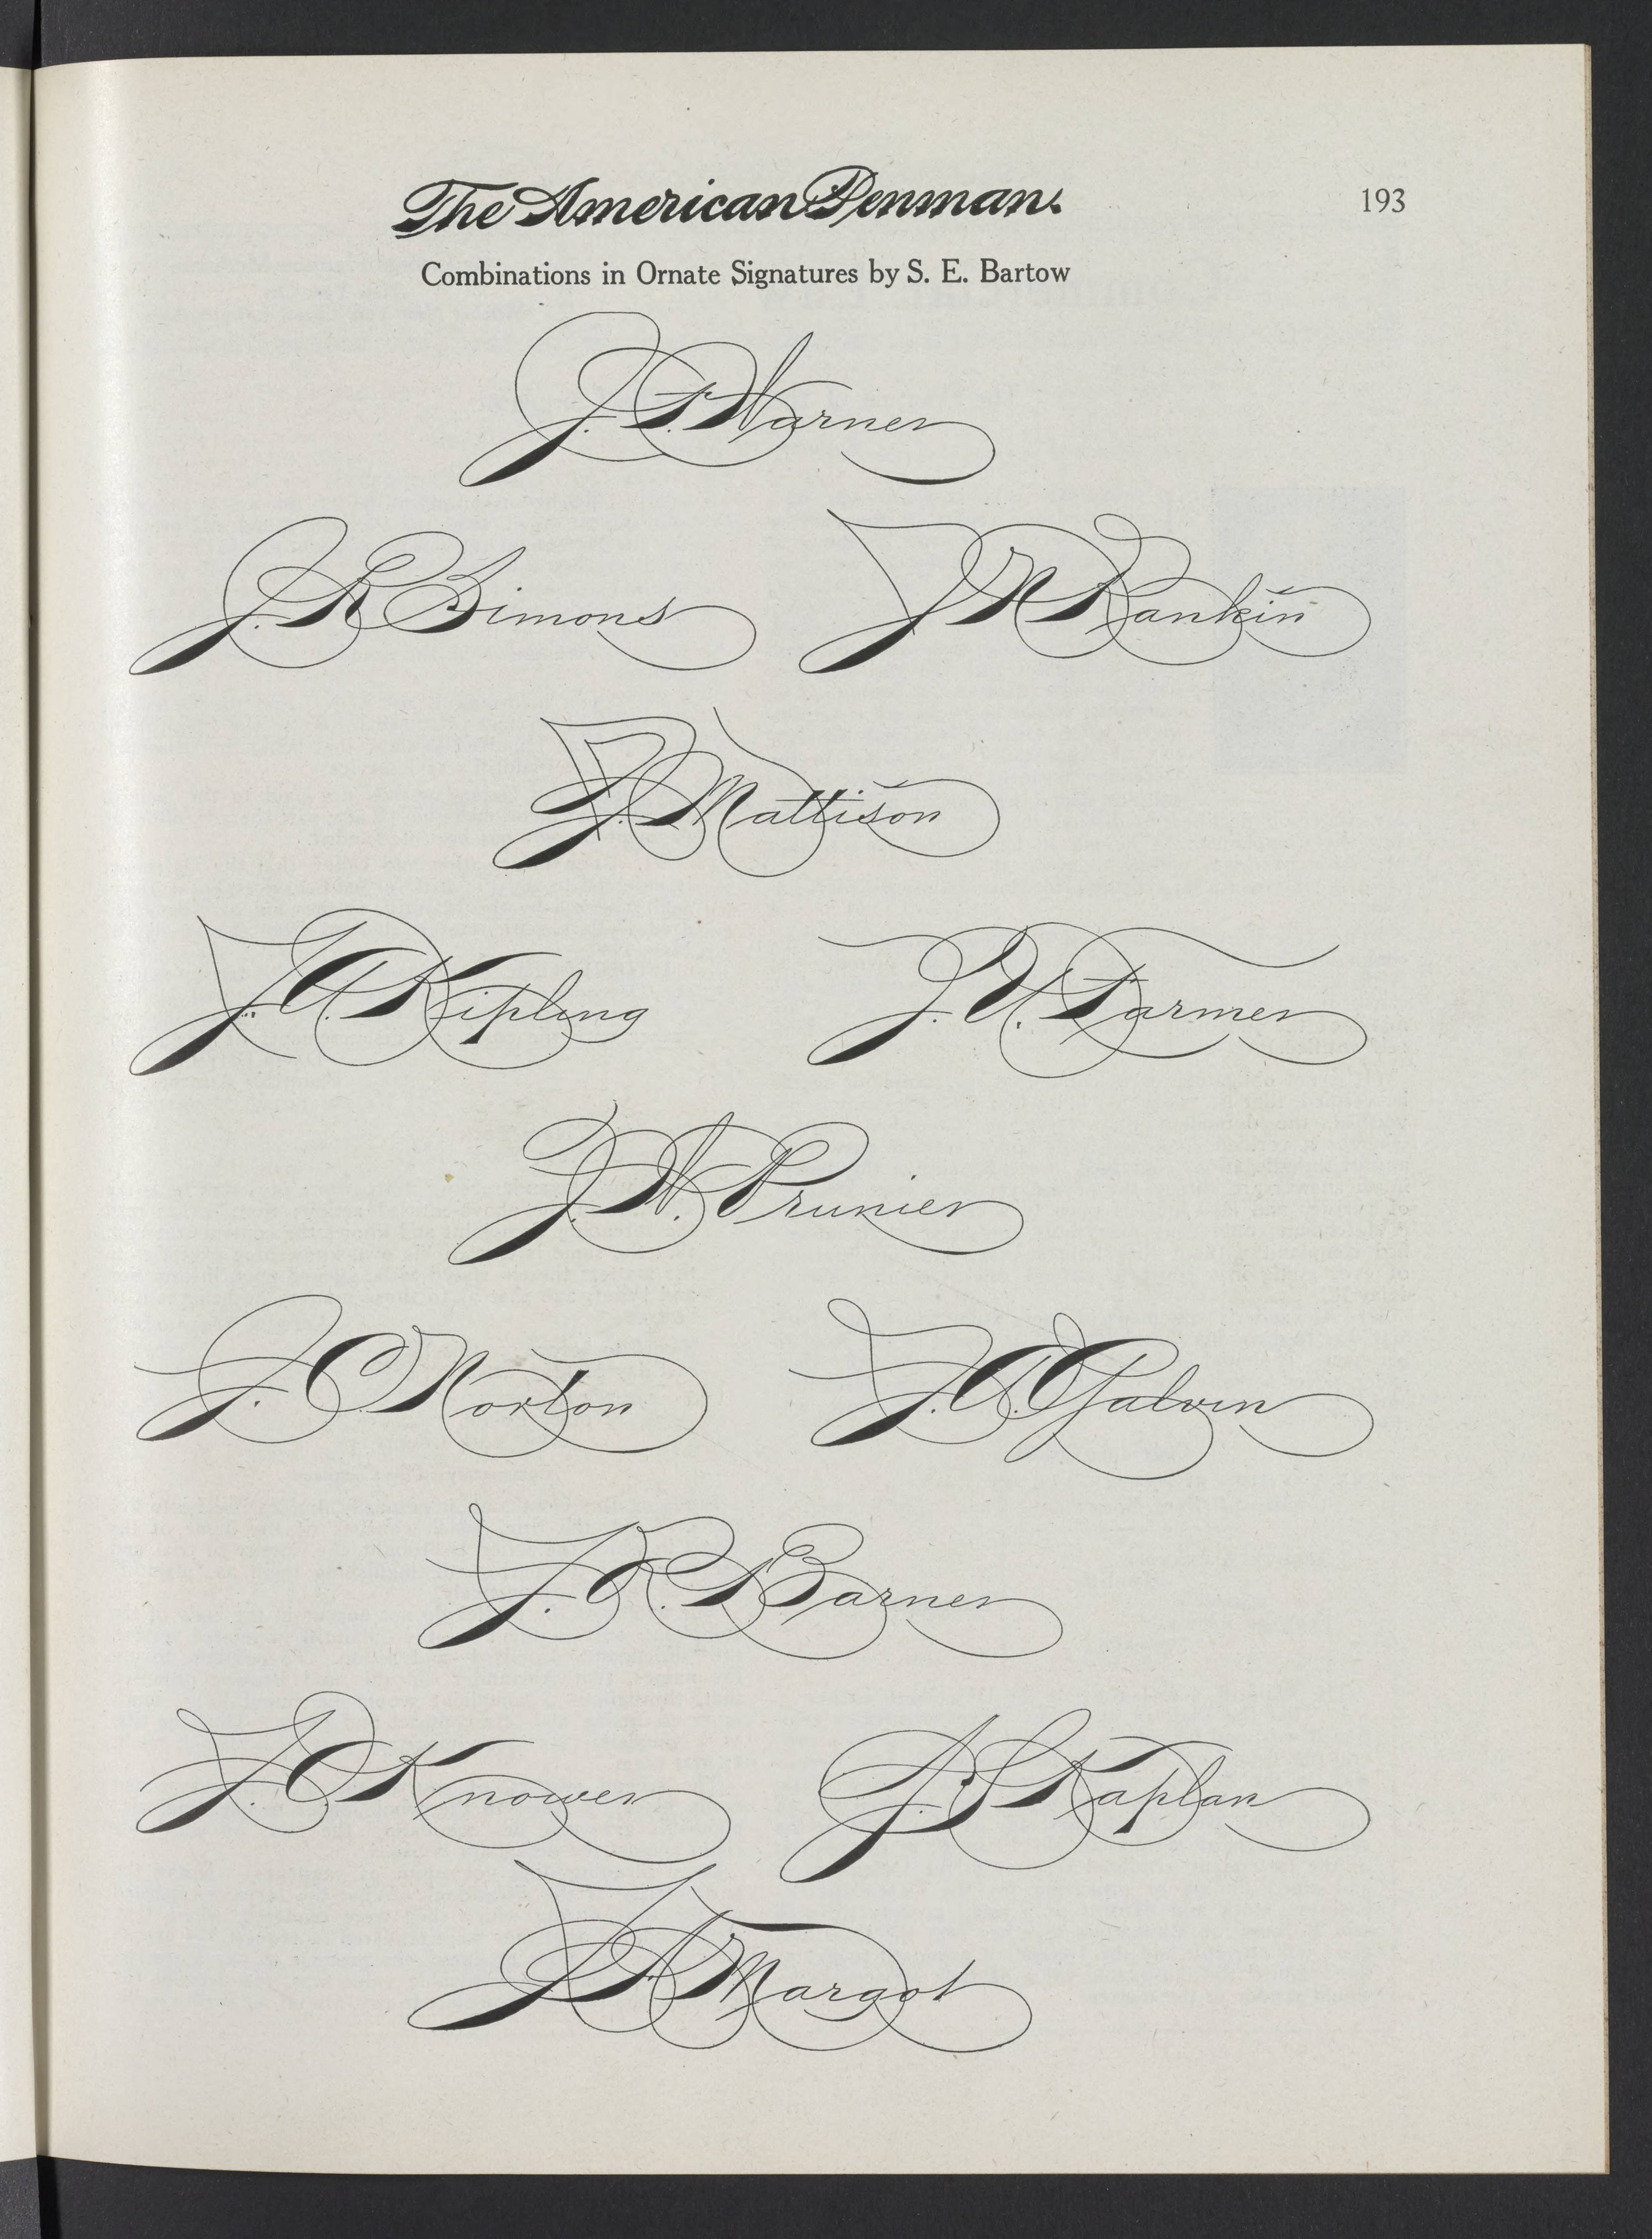 The American Penman.
193
Combinations in Ornate Signatures by S. E. Bartow
J. P. Warner
J. R. Simons
J N Rankin
J. Mattison
J. A. Kipling
J. U. Farmer
J. W. Prunier
J. C. Norton
J. A. Galvin
J. R. Barner
J. O. Knower
J. S. Kaplan
Margot